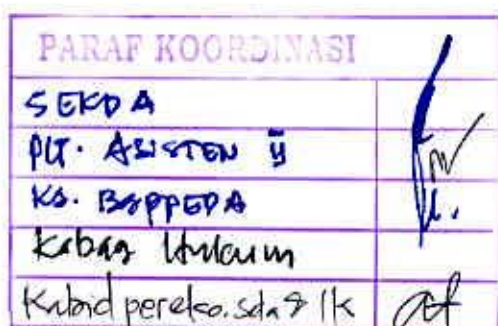 PARAF KOORDINASI
SEKDA
PLT. ASISTEN II
KA. BAPPEDA
Kabag Hukum
Kabid pereko. sda & lk